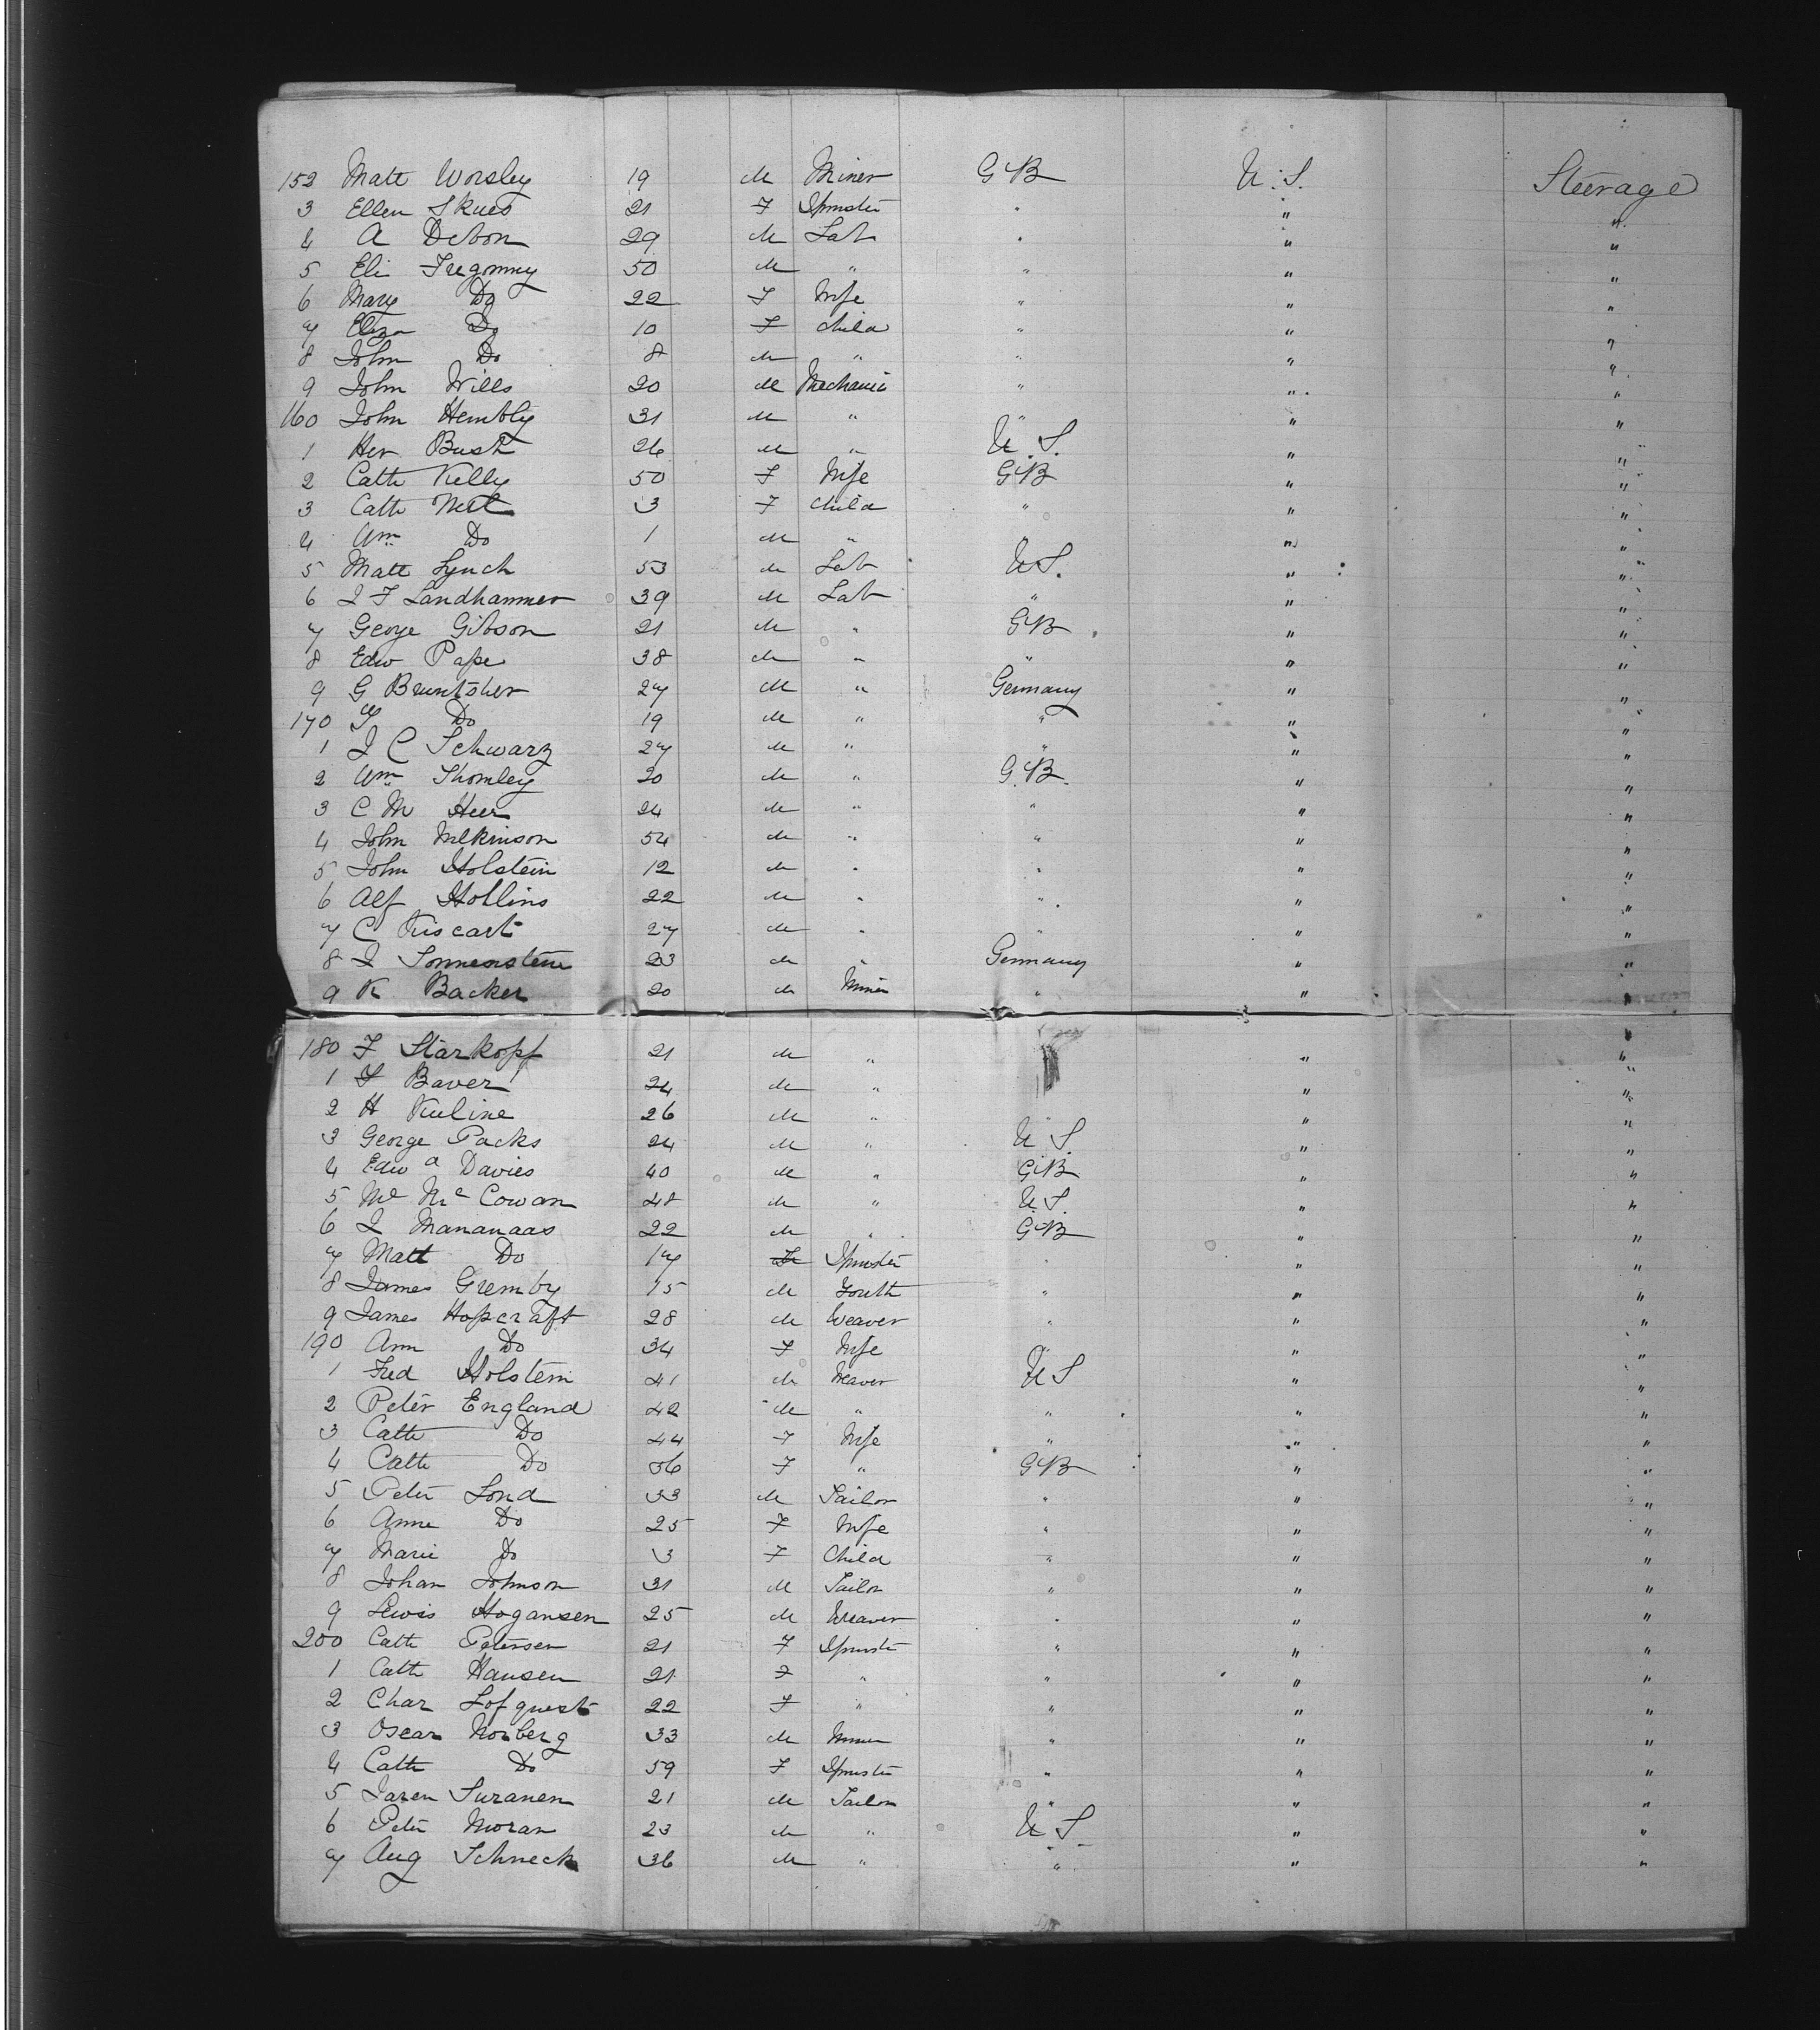 152 Matt Worsley 19 M Miner GB U.S. Steerage
3 Ellen Skues 21 F Spinster " " "
4 A Debon 29 M Lab " " "
5 Eli Tregonny 50 M " " " "
6 Mary Do 22 F Wife " " "
7 Eliza Do 10 F Child " " "
8 John Do 8 M " " " "
9 John Wills 20 M Mechanic " " "
160 John Hembly 31 M " " " "
1 Her Bush 26 M " U.S. " "
2 Cath Kelly 50 F Wife GB " "
3 Cath 3 F Child " " "
4 Wm Do 1 M " " "
5 Matt Lynch 53 M Lab U.S. " "
6 J F Landhammer 39 M Lab " " "
7 George Gibson 21 M " GB " "
8 Edw Pape 38 M " " " "
9 G Bruntsher 27 M " Germany " "
170 Do 19 M " " " "
1 J C Schwarz 27 M " " " "
2 Wm Thomley 20 M " G.B. " "
3 C M Heer 24 M " " " "
4 John Wilkinson 54 M " " " "
5 John Holstein 12 M " " " "
6 Alf Hollins 22 M " " " "
7 C Kiscart 27 M " " " "
8 J Sonnenstein 23 M " Germany " "
9 K Backer 20 M Miner " " "
180 F Starkopf 21 M " " "
1 F Baver 24 M " " "
2 H Kuline 26 M " " "
3 George Packs 24 M " U.S. " "
4 Edwd Davies 40 M " GB " "
5 Mc Cowan 48 M " U.S. " "
6 J Mananaas 22 M " GB " "
7 Matt Do 17 F Spinster " " "
8 James Gremby 15 M Youth " " "
9 James Hopcraft 28 M Weaver " " "
190 Ann Do 34 F Wife " " "
1 Fred Holstein 41 M Weaver US " "
2 Peter England 42 M " " " "
3 Cath Do 44 F Wife " " "
4 Cath Do 36 F " GB " "
5 Peter Lond 33 M Tailor " " "
6 Anne Do 25 F Wife " " "
7 Marie Do 3 F Child " " "
8 Johan Johnson 31 M Tailor " " "
9 Lewis Hogansen 25 M Weaver " " "
200 Cath Petersen 21 F Spinster " " "
1 Cath Hansen 21 F " " " "
2 Char Lofquest 22 F " " " "
3 Oscar Norberg 33 M Miner " " "
4 Cath Do 59 F Spinster " " "
5 Jaren Suranen 21 M Tailor " " "
6 Peter Moran 23 M " U.S. " "
7 Aug Schneck 36 M " " " "